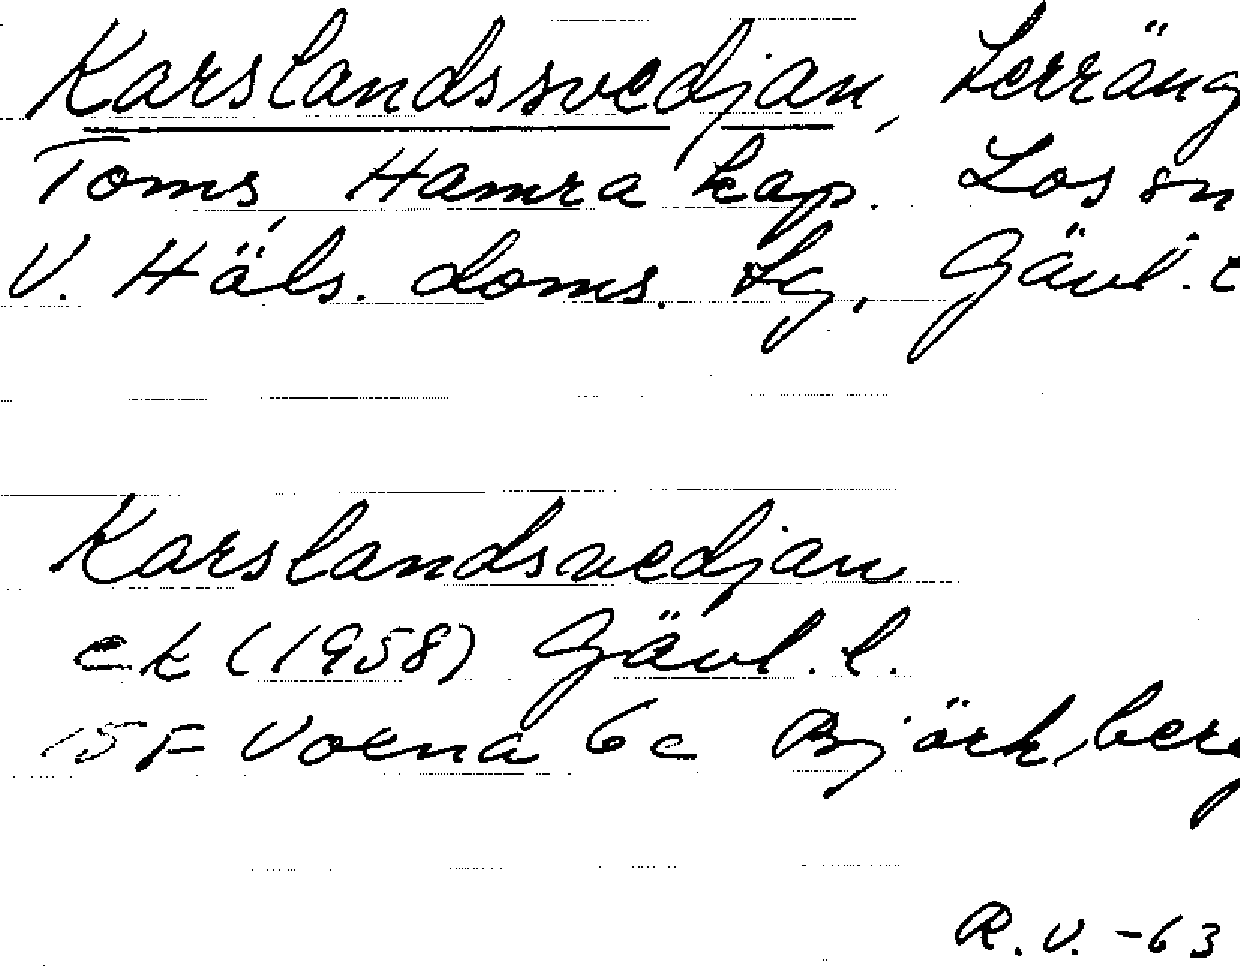 Karslandssvedjan, terräng
Toms, Hamra kap. Los sn
V. Häls. doms. tg, Gävl. l
Karslandsvedjan
ek (1958) Gävl. l.
15F Voxna 6c Björkberg
R.V. -63